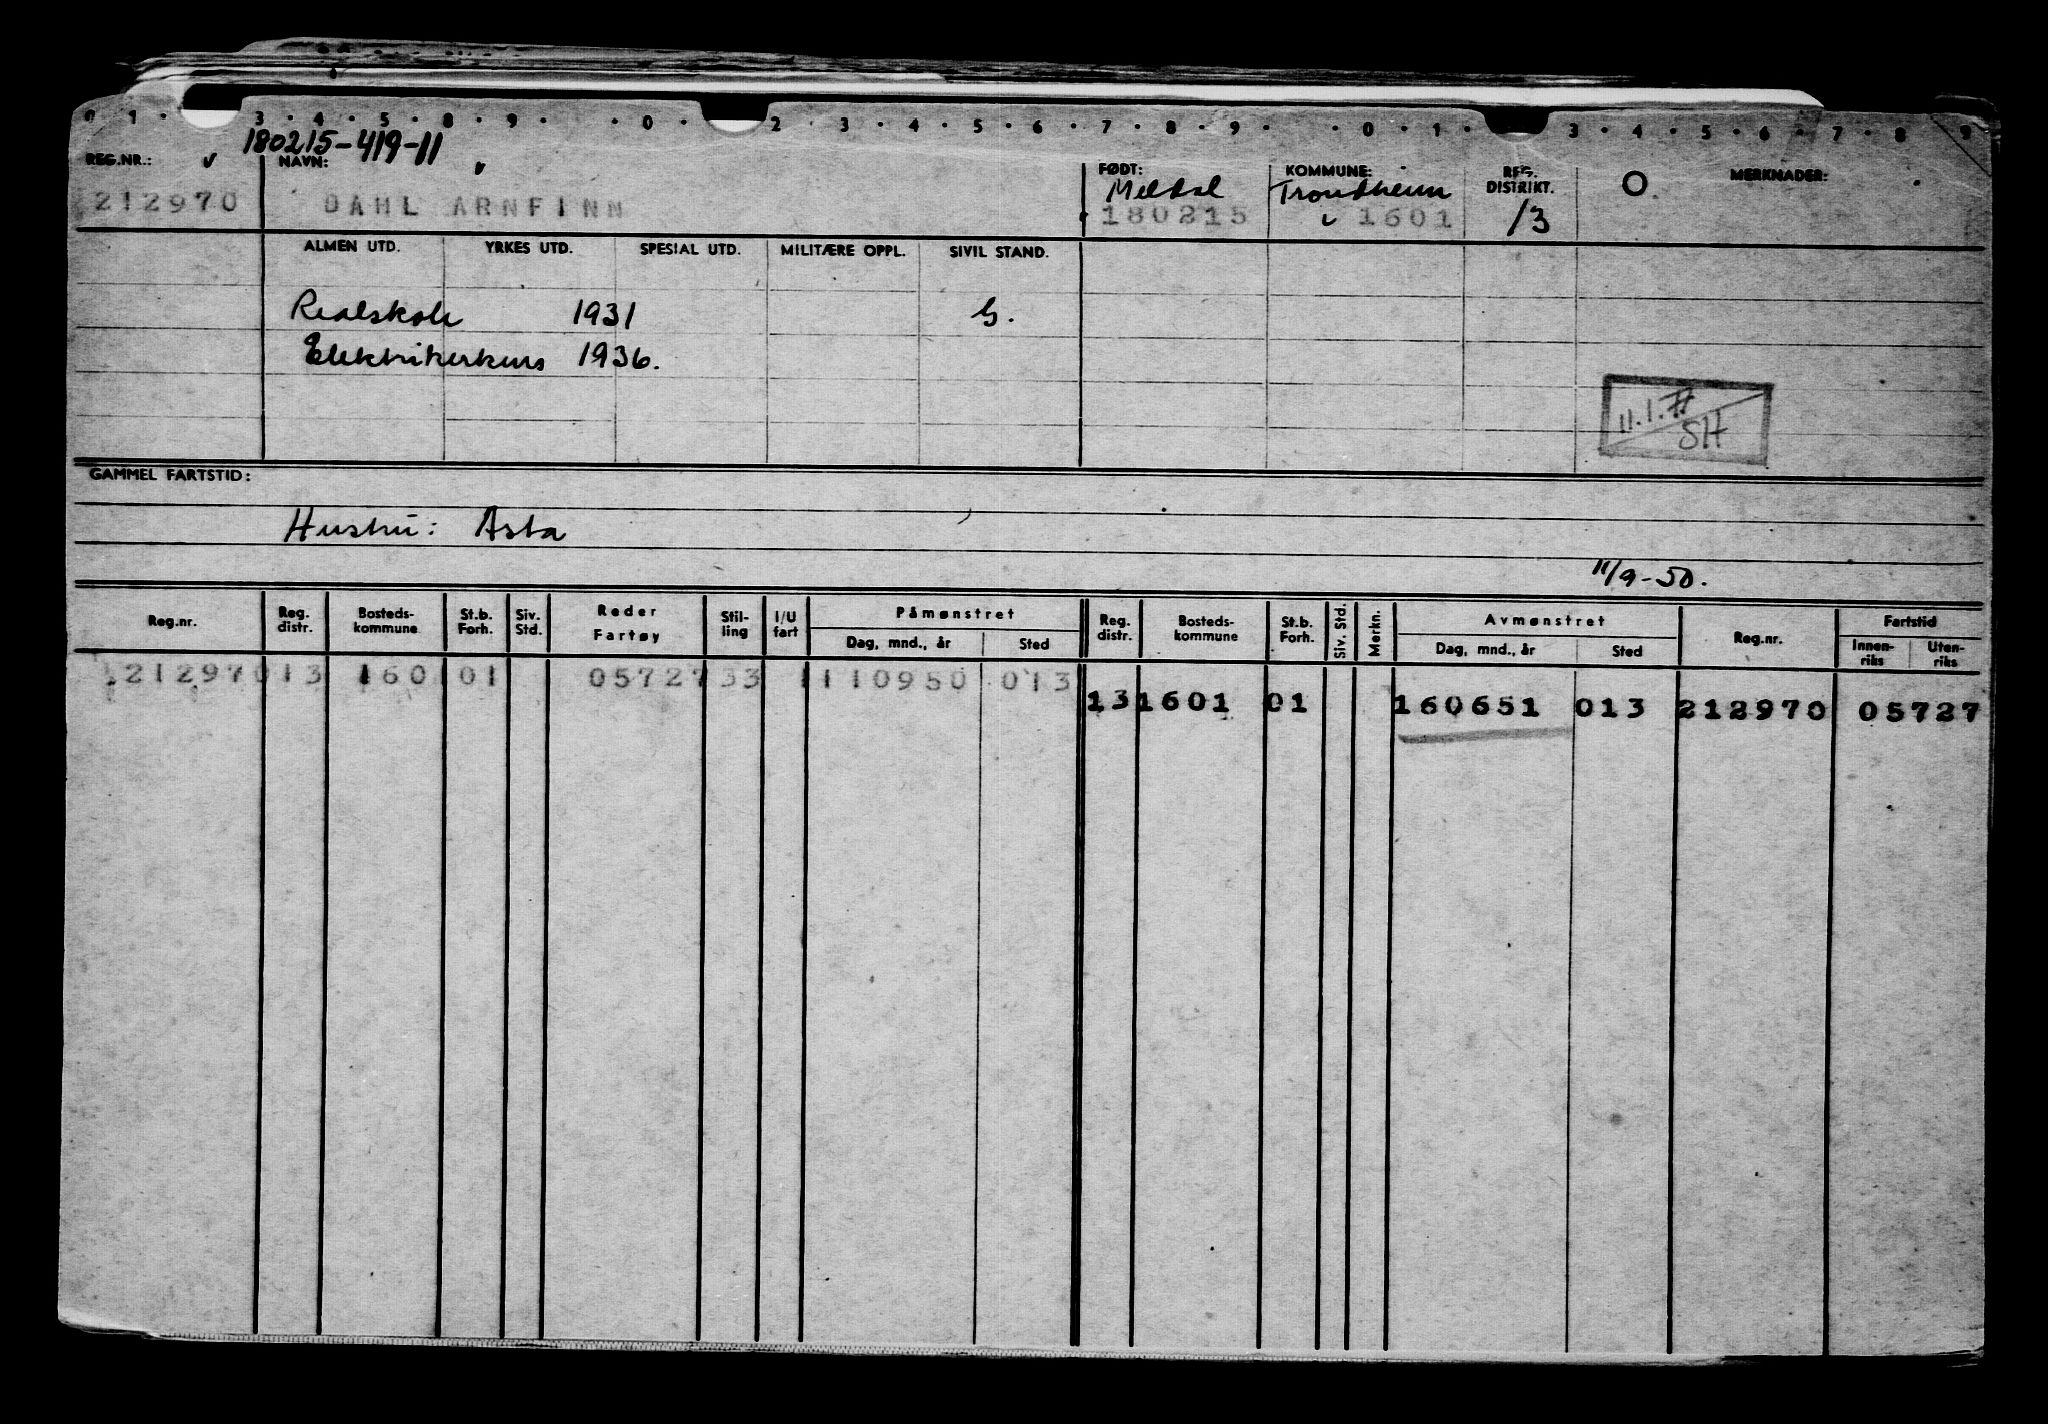 0 1 · 3 · 4 · 5 · 8 · 9 · · 0 · 2 · 3 · 4 · 5 · 6 · 7 · 8 · 9 · · 0 · 1 · 3 · 4 · 5 · 6 · 7 · 8 9
180215-419-11
REG.NR.: NAVN: FØDT: KOMMUNE: REG. DISTRIKT. O MERKNADER:
Meldal Trondheim
212970 DAHL ARNFINN 180215 1601 13
ALMEN UTD. YRKES UTD. SPESIAL UTD. MILITÆRE OPPL. SIVIL STAND.
Realskole 1931 G.
Elektrikerkurs 1936.
11.1.77
SH
GAMMEL FARTSTID:
Hustru: Asta
11/9-50.
Reg.nr. Reg. distr. Bosteds-kommune St.b. Forh. Siv. Std. Reder Fartøy Stil-ling I/U fart Påmønstret Dag, mnd., år Sted Reg. distr. Bosteds-kommune St.b. Forh. Siv. Std. Merkn. Avmønstret Dag, mnd., år Sted Reg.nr. Fartstid Innen-riks Uten-riks
212970 13 1601 01 05727 33 1 110950 013
13 1601 01 160651 013 212970 05727